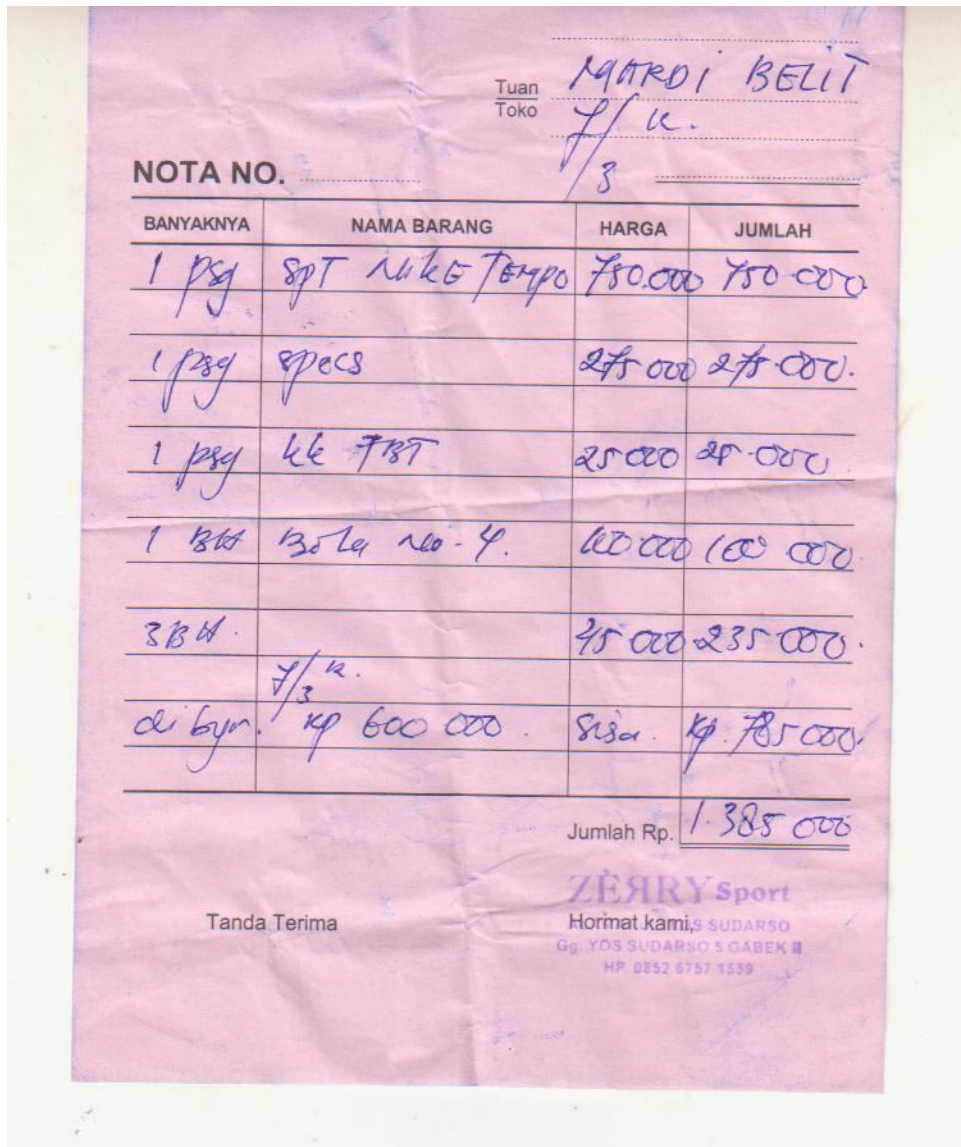 Tuan MARDI BELIT
Toko 7/3 k.
NOTA NO.
BANYAKNYA NAMA BARANG HARGA JUMLAH
1 psg SPT NIKE TEMPO 750.000 750.000
1 psg specs 275 000 275.000.
1 psg kk TBT 25 000 25.000
1 BH Bola No. 4. 100 000 100 000
3 BH. 45 000 235 000.
7/3 k.
di byr. Rp 600 000. Sisa. Rp. 785 000.
Jumlah Rp. 1.385 000
ZERRY Sport
Tanda Terima Hormat kami, SUDARSO
Gg. YOS SUDARSO 5 GABEK II
HP. 0852 6757 1559